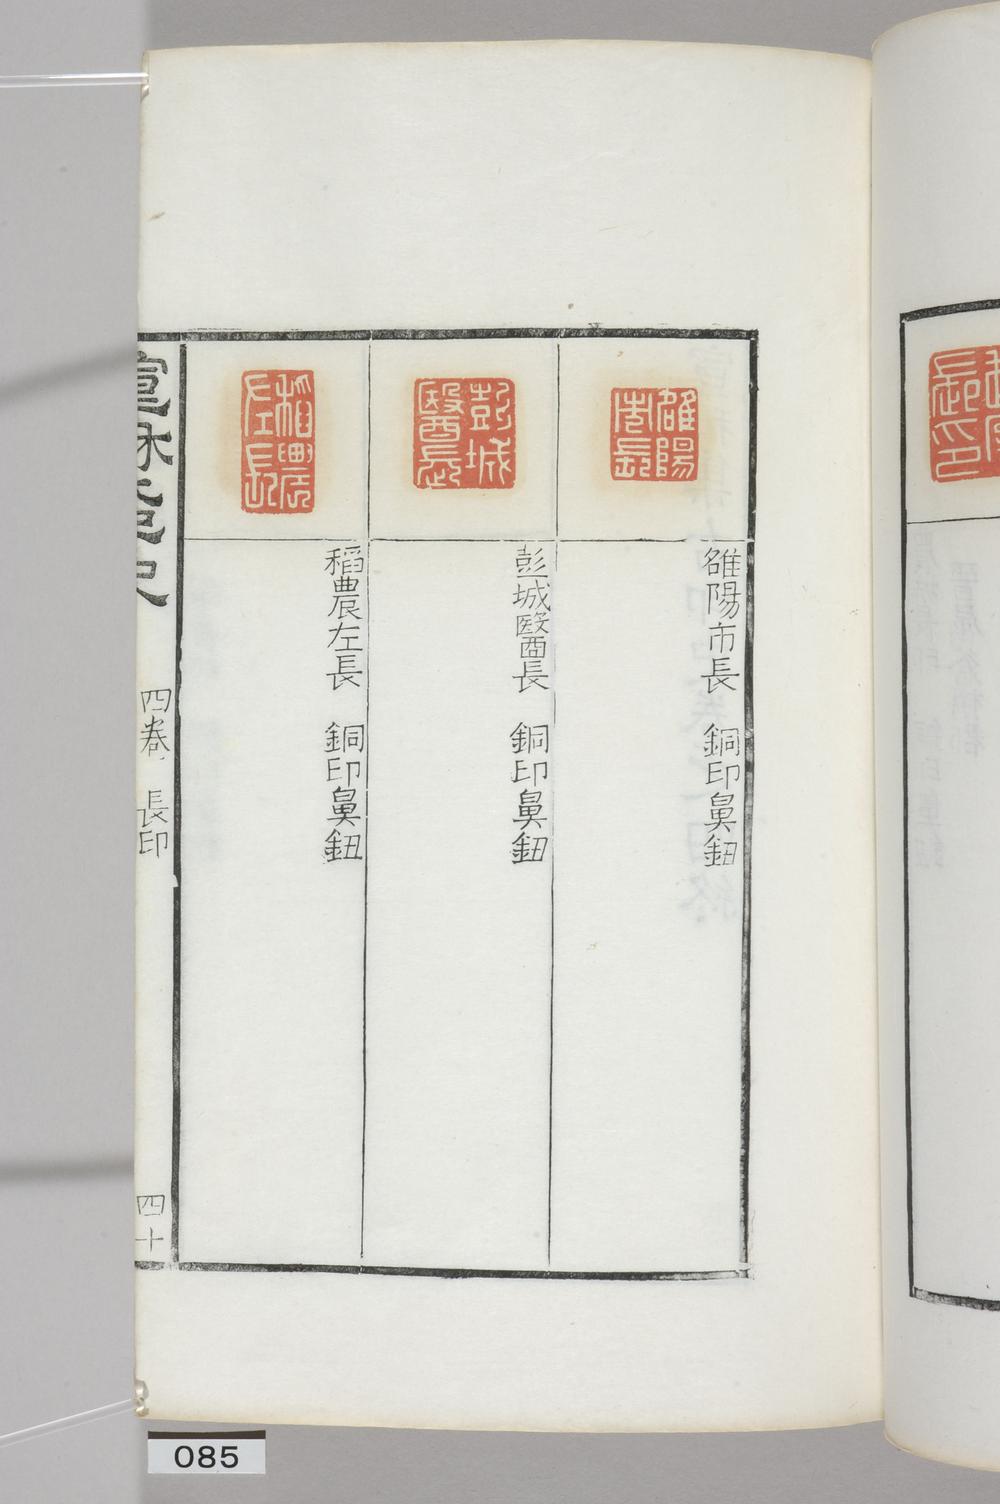 雒陽
市長
雒陽市長 銅印鼻鈕
彭城
醫長
彭城醫長 銅印鼻鈕
稻農
左長
稻農左長 銅印鼻鈕
四卷 長印
四十
085